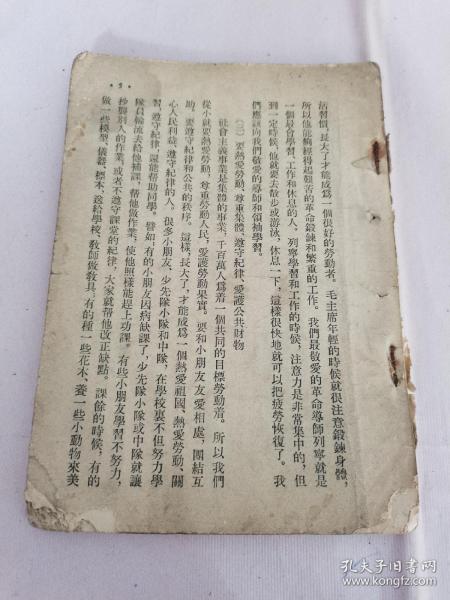 活習慣，長大了才能成爲一個很好的勞動者。毛主席年輕的時候就很注意鍛鍊身體，
所以他能夠經得起艱苦的革命鍛鍊和繁重的工作。我們最敬愛的革命導師列寧就是
一個最會學習、工作和休息的人，列寧學習和工作的時候，注意力是非常集中的，但
到一定時候，他就要去散步或游泳，休息一下，這樣很快地就可以把疲勞恢復了。我
們應該向我們敬愛的導師和領袖學習。
要熱愛勞動、尊重集體、遵守紀律、愛護公共財物
社會主義事業是集體的事業，千百萬人爲着一個共同的目標勞動着。所以我們
從小就要熱愛勞動，尊重勞動人民，愛護勞動果實。要和小朋友友愛相處，團結互
助，要遵守紀律和公共的秩序。這樣，長大了，才能成爲一個熱愛祖國、熱愛勞動、關
心人民利益、遵守紀律的人。很多小朋友、少先隊小隊和中隊，在學校裏不但努力學
習，遵守紀律，還能帮助同學。譬如，有的小朋友因病缺課了，少先隊小隊或中隊就讓
隊員輪流去給他補課，帮他做作業，使他照樣能趕上功課。有些小朋友學習不努力，
抄襲別人的作業，或者不遵守課堂的紀律，大家就帮他改正缺點。課餘的時候，有的
做一些模型、儀器、標本，送給學校、敎師做敎具，有的種一些花木、養一些小動物來美
孔夫子旧书网
www.kongfz.com